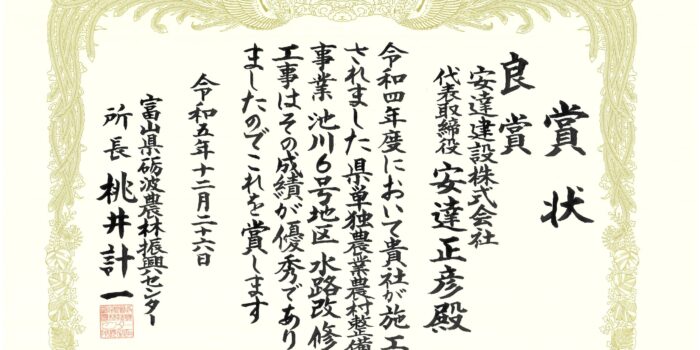 賞状
良賞
安達建設株式会社
代表取締役 安達正彦殿
令和四年度において貴社が施工
されました県単独農業農村整備
事業 池川6号地区 水路改修
工事はその成績が優秀であり
ましたのでこれを賞します
令和五年十二月二十六日
富山県砺波農林振興センター
所長 桃井計一